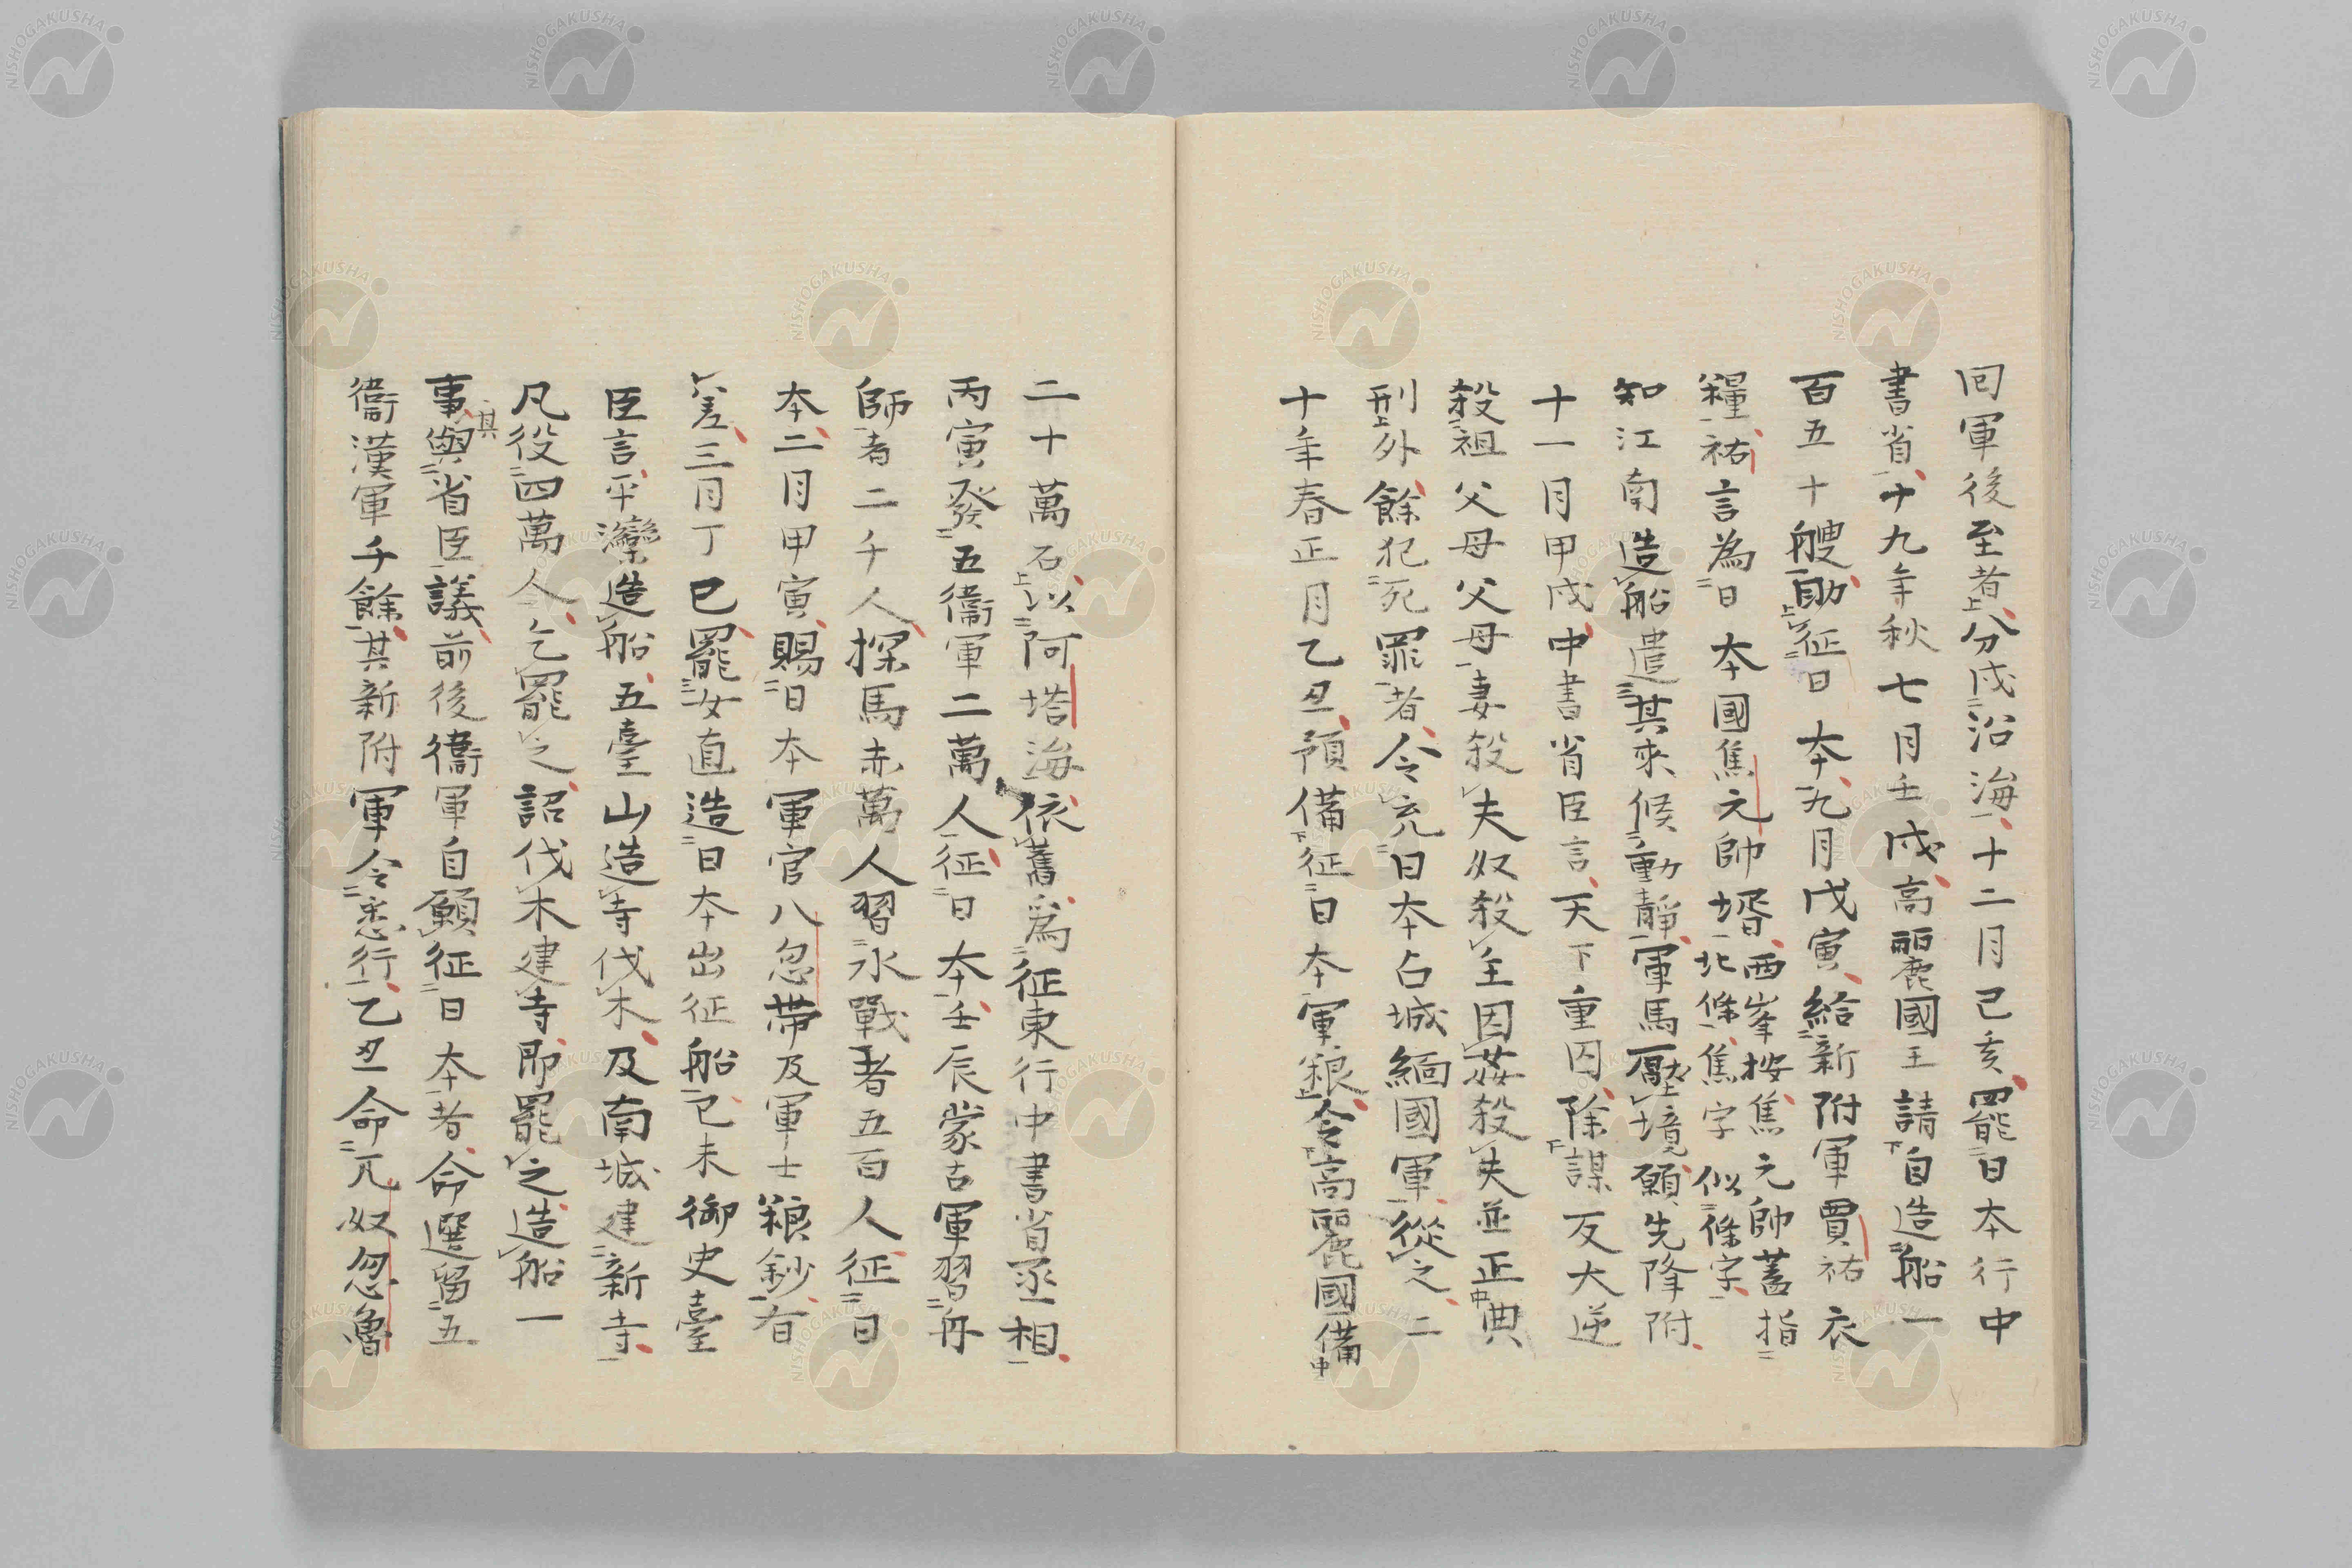 回軍後至者分戍沿海十二月己亥罷日本行中
書省十九年秋七月壬戌高麗國王請自造船一
百五十艘助征日本九月戊寅給新附軍賈祐衣
糧祐言為日本國焦元帥壻
西峯按焦元帥蓋指
北條焦字似條字
知江南造船遣其來候動靜軍馬壓境願先降附
十一月甲戌中書省臣言天下重囚除謀反大逆
殺祖父母父母妻殺夫奴殺主因姦殺夫並正典
刑外餘犯死罪者令充日本占城緬國軍從之二
十年春正月乙丑預備征日本軍粮令高麗國備
二十萬石以阿塔海依舊爲征東行中書省丞相
丙寅發五衞軍二萬人征日本壬辰蒙古軍習舟
師者二千人探馬赤萬人習水戰者五百人征日
本二月甲寅賜日本軍官八忽帶及軍士粮鈔有
差三月丁巳罷女直造日本出征船己未御史臺
臣言平灤造船五臺山造寺伐木及南城建新寺
凡役四萬人乞罷之詔伐木建寺即罷之造船一
事其與省臣議前後衞軍自願征日本者命選留五
衞漢軍千餘其新附軍令悉行乙丑命兀奴忽魯
NISHOGAKUSHA